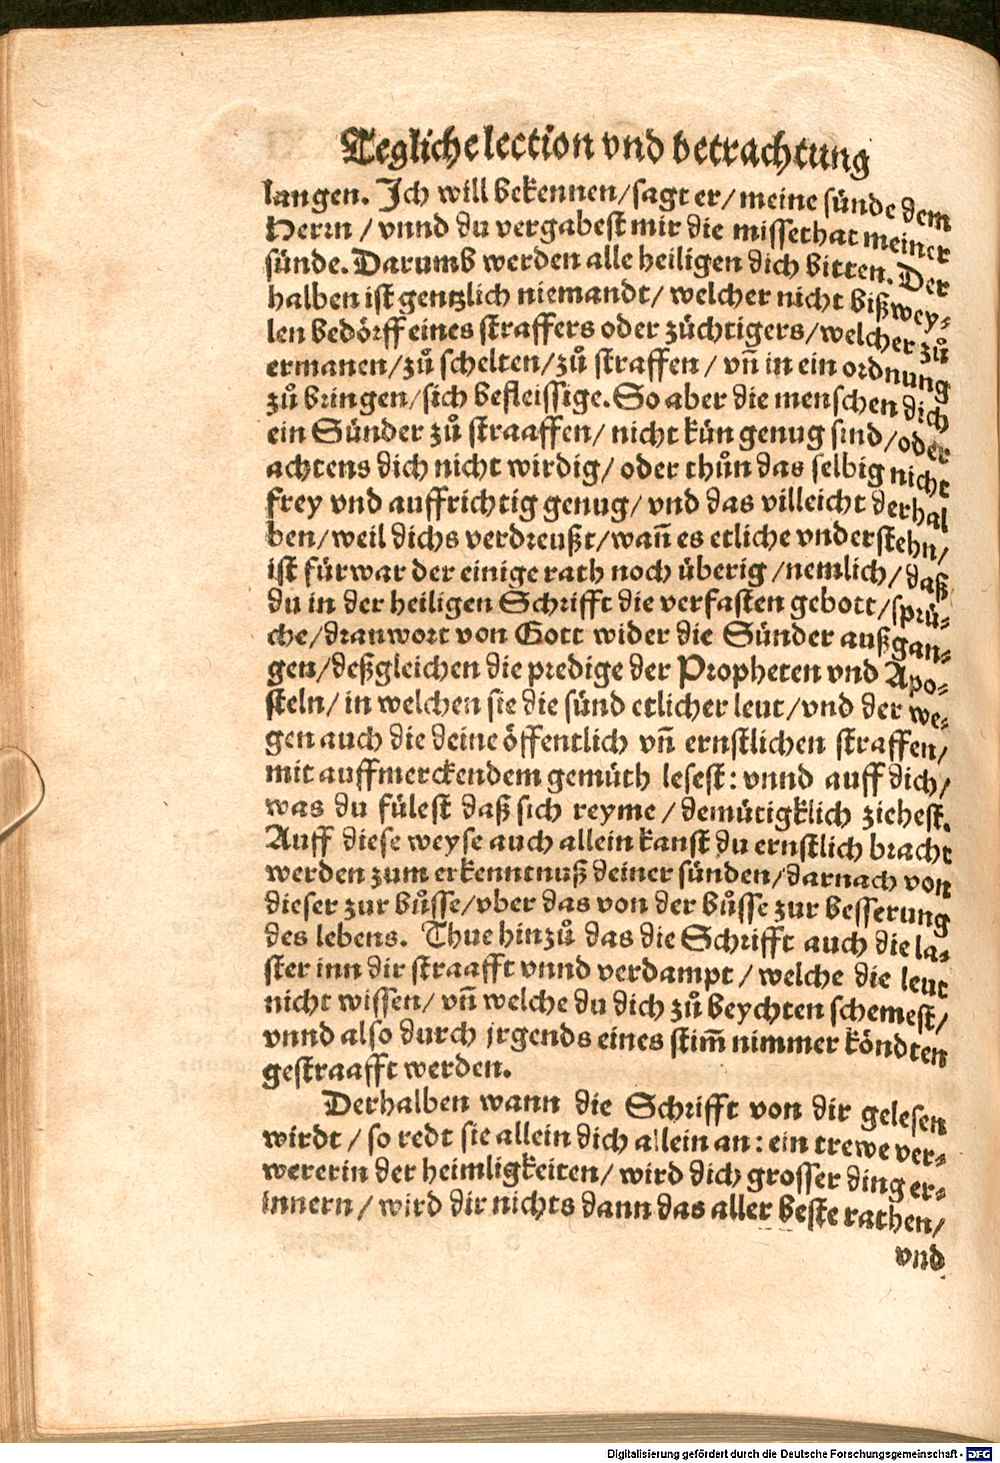 Tegliche lection vnd betrachtung
langen. Ich will bekennen/sagt er/meine sünde dem
Herrn / vnnd du vergabest mir die missethat meiner
sünde. Darumb werden alle heiligen dich bitten. Der
halben ist gentzlich niemandt/ welcher nicht bißwey-
len bedörff eines straffers oder züchtigers/welcher zů
ermanen/zů schelten/zů straffen / vñ in ein ordnung
zů bringen/sich befleissige. So aber die menschen dich
ein Sünder zů straaffen/ nicht kün genug sind/oder
achtens dich nicht wirdig/ oder thůn das selbig nicht
frey vnd auffrichtig genug/ vnd das villeicht derhal
ben/weil dichs verdreußt/wañ es etliche vnderstehn/
ist fürwar der einige rath noch überig /nemlich/ daß
du in der heiligen Schrifft die verfasten gebott/sprü-
che/drauwort von Gott wider die Sünder außgan-
gen/deßgleichen die predige der Propheten vnd Apo-
steln/ in welchen sie die sünd etlicher leut/vnd der we-
gen auch die deine öffentlich vñ ernstlichen straffen/
mit auffmerckendem gemüth lesest: vnnd auff dich/
was du fülest daß sich reyme /demütigklich ziehest.
Auff diese weyse auch allein kanst du ernstlich bracht
werden zum erkenntnuß deiner sünden/darnach von
dieser zur bůsse/vber das von der bůsse zur besserung
des lebens. Thue hinzů das die Schrifft auch die la-
ster inn dir straafft vnnd verdampt / welche die leut
nicht wissen/ vñ welche du dich zů beychten schemest/
vnnd also durch jrgends eines stim̃ nimmer köndten
gestraafft werden.
Derhalben wann die Schrifft von dir gelesen
wirdt / so redt sie allein dich allein an: ein trewe ver-
wererin der heimligkeiten/ wird dich grosser ding er-
innern / wird dir nichts dann das aller beste rathen/
vnd
Digitalisierung gefördert durch die Deutsche Forschungsgemeinschaft - DFG